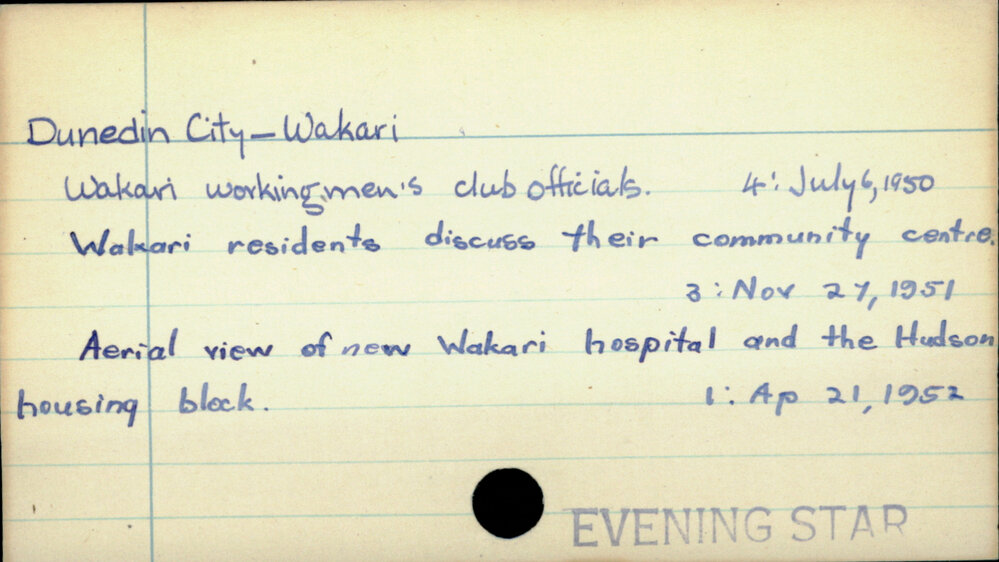 Dunedin City – Wakari
Wakari workingmen's club officials. 4: July 6, 1950
Wakari residents discuss their community centre.
3: Nov 27, 1951
Aerial view of new Wakari hospital and the Hudson
housing block. 1: Ap 21, 1952
EVENING STAR